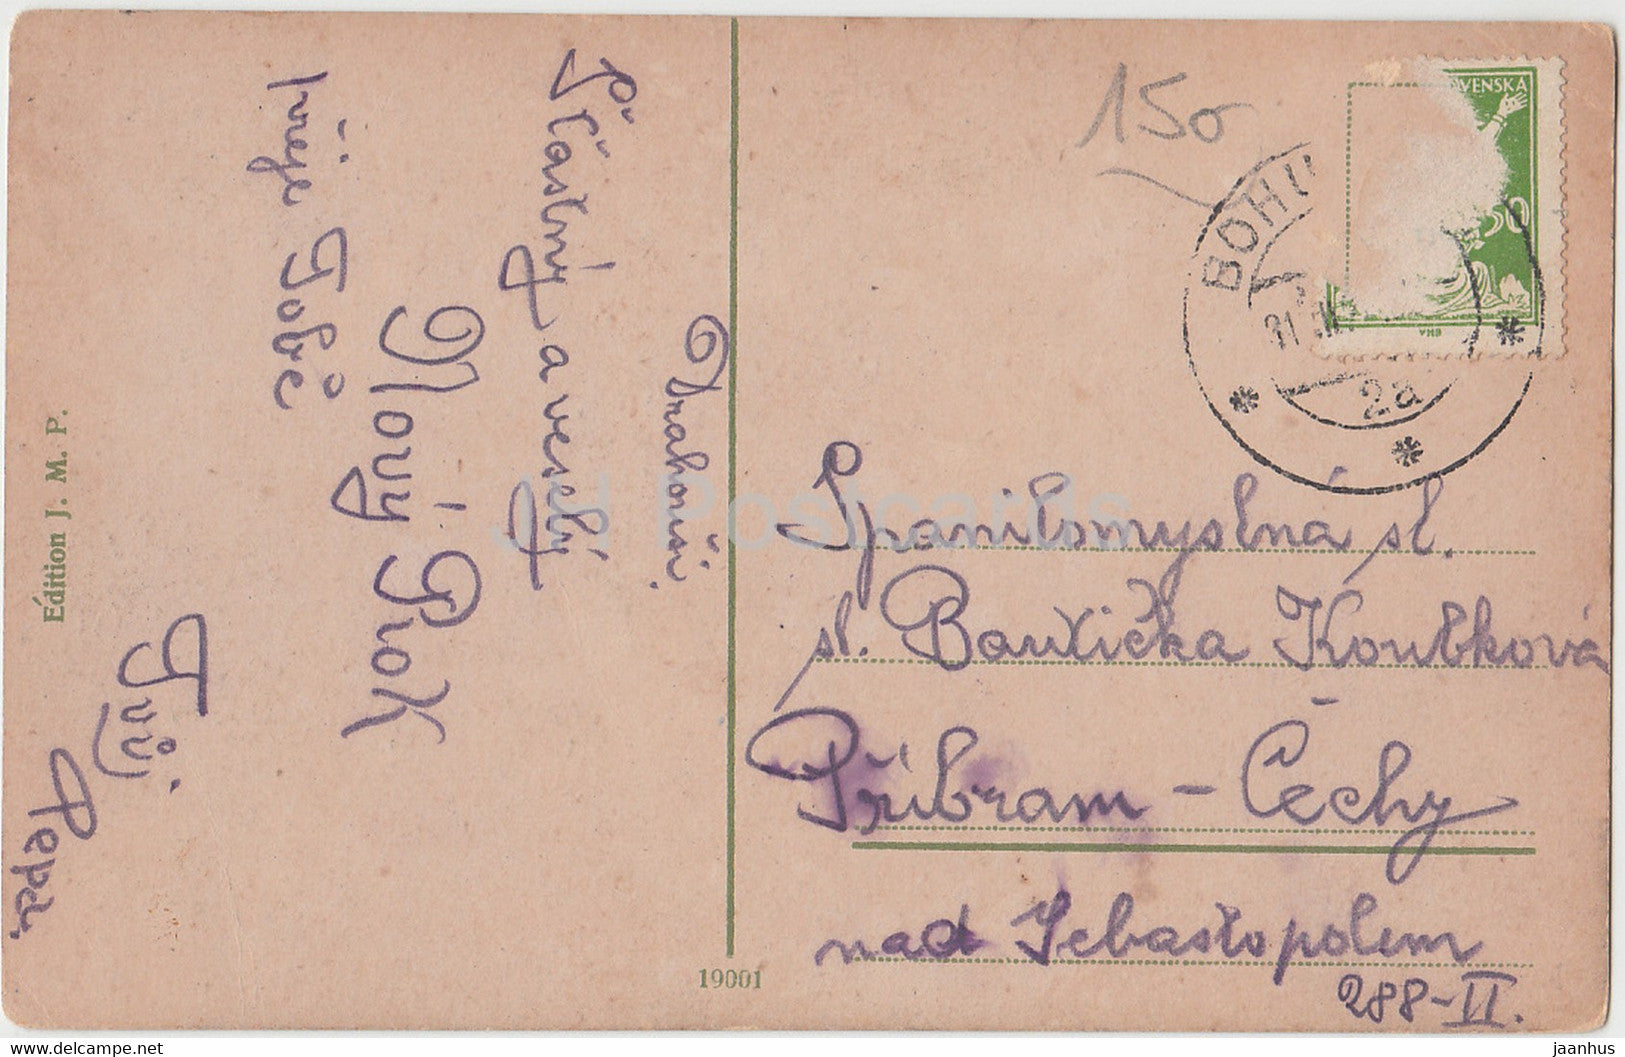 Drahouši
Šťastný a veselý
Nový Rok
přeje Tobě
Tvůj
Pepa.
Édition J. M. P.
19001
150
VENSKÁ
50
VHB
BOHU
31
2a
Spanilomyslná sl.
sl. Boužička Koutková
Příbram - Čechy
nad Sebastopolem
288-II.
JH Postcards
www.delcampe.net
jaanhus